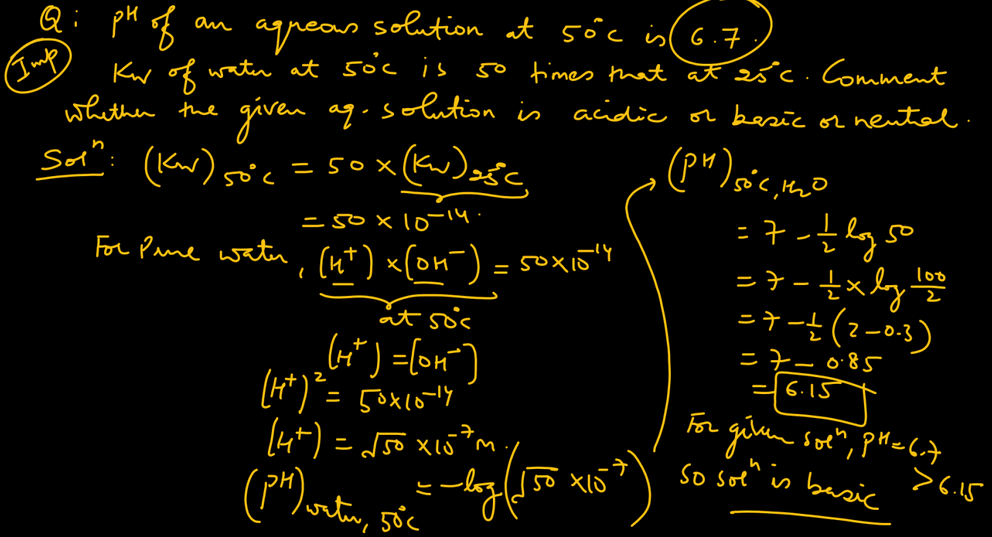 Q: pH of an aqueous solution at 50°C is 6.7.
Imp
Kw of water at 50°C is 50 times that at 25°C. Comment
whether the given aq. solution is acidic or basic or neutral.
Solⁿ: (Kw)50°C = 50 × (Kw)25°C
= 50 × 10⁻¹⁴.
For Pure water, (H⁺) × (OH⁻) = 50×10⁻¹⁴
at 50°C
(H⁺) = [OH⁻]
(H⁺)² = 50×10⁻¹⁴
(H⁺) = √50 × 10⁻⁷ M.
(pH)water, 50°C = -log(√50 × 10⁻⁷)
(pH)50°C, H₂O
= 7 - 1/2 log 50
= 7 - 1/2 × log 100/2
= 7 - 1/2 (2 - 0.3)
= 7 - 0.85
= 6.15
For given solⁿ, pH = 6.7
> 6.15
so solⁿ is basic